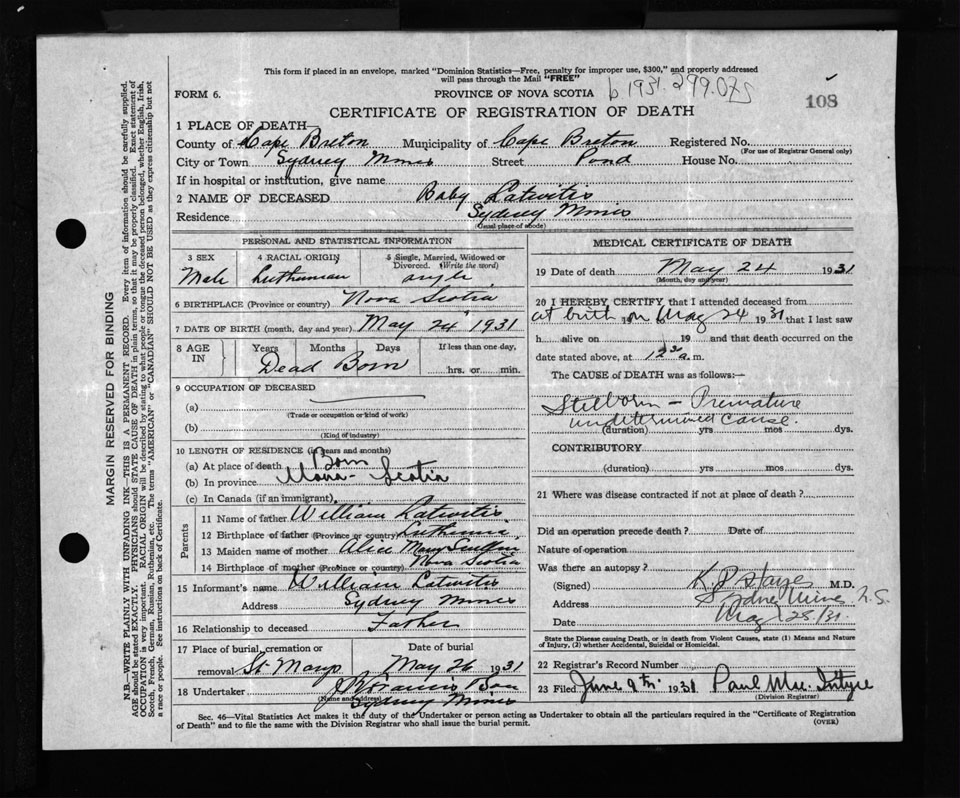 This form if placed in an envelope, marked "Dominion Statistics—Free, penalty for improper use, $300," and properly addressed
will pass through the Mail "FREE"
FORM 6.
PROVINCE OF NOVA SCOTIA
b 1931. 299.075
108
CERTIFICATE OF REGISTRATION OF DEATH
1 PLACE OF DEATH—
County of Cape Breton Municipality of Cape Breton Registered No.
(For use of Registrar General only)
City or Town Sydney Mines Street Pond House No.
If in hospital or institution, give name
2 NAME OF DECEASED Baby Latwitis
Residence Sydney Mines
(Usual place of abode)
PERSONAL AND STATISTICAL INFORMATION
3 SEX 4 RACIAL ORIGIN 5 Single, Married, Widowed or
Divorced. (Write the word)
Male Luthuenian single
6 BIRTHPLACE (Province or country) Nova Scotia
7 DATE OF BIRTH (month, day and year) May 24" 1931
8 AGE IN Years Months Days If less than one day,
Dead Born hrs. or min.
9 OCCUPATION OF DECEASED
(a)
(Trade or occupation or kind of work)
(b)
(Kind of industry)
10 LENGTH OF RESIDENCE (in years and months)
(a) At place of death Born
(b) In province Nova-Scotia
(c) In Canada (if an immigrant)
Parents
11 Name of father William Latwitis
12 Birthplace of father (Province or country) Luthinia
13 Maiden name of mother Alice Mary
14 Birthplace of mother (Province or country) Nova Scotia
15 Informant's name William Latwitis
Address Sydney Mines
16 Relationship to deceased Father
17 Place of burial, cremation or Date of burial
removal St Marys May 26 1931
18 Undertaker Francis
(Name and address)
Sydney Mines
MEDICAL CERTIFICATE OF DEATH
19 Date of death May 24 1931
(Month, day and year)
20 I HEREBY CERTIFY, that I attended deceased from
at birth 19 on May 24 1931 that I last saw
h alive on 19 and that death occurred on the
date stated above, at 12 a. m.
The CAUSE of DEATH was as follows:—
Stillborn — Premature
undetermined cause.
(duration) yrs mos dys.
CONTRIBUTORY
(duration) yrs mos dys.
21 Where was disease contracted if not at place of death?
Did an operation precede death? Date of
Nature of operation
Was there an autopsy?
(Signed) M.D.
Address Sydney Mines N.S.
Date May 25/31
State the Disease causing Death, or in death from Violent Causes, state (1) Means and Nature
of Injury, (2) whether Accidental, Suicidal or Homicidal.
22 Registrar's Record Number
23 Filed June 9th 1931 Paul Mac. Intyre
(Division Registrar)
Sec. 46—Vital Statistics Act makes it the duty of the Undertaker or person acting as Undertaker to obtain all the particulars required in the "Certificate of Registration
of Death" and to file the same with the Division Registrar who shall issue the burial permit.
(OVER)
MARGIN RESERVED FOR BINDING
N.B.—WRITE PLAINLY WITH UNFADING INK—THIS IS A PERMANENT RECORD. Every item of information should be carefully supplied.
AGE should be stated EXACTLY. PHYSICIANS should STATE CAUSE OF DEATH in plain terms, so that it may be properly classified. Exact statement of
OCCUPATION is very important. RACIAL ORIGIN will be described by stating to what people or tongue the deceased person belonged, whether English, Irish,
Scotch, French, German, Russian, Ruthenian, etc. The terms "AMERICAN" or "CANADIAN" SHOULD NOT BE USED as they express citizenship but not
a race or people. See instructions on back of Certificate.